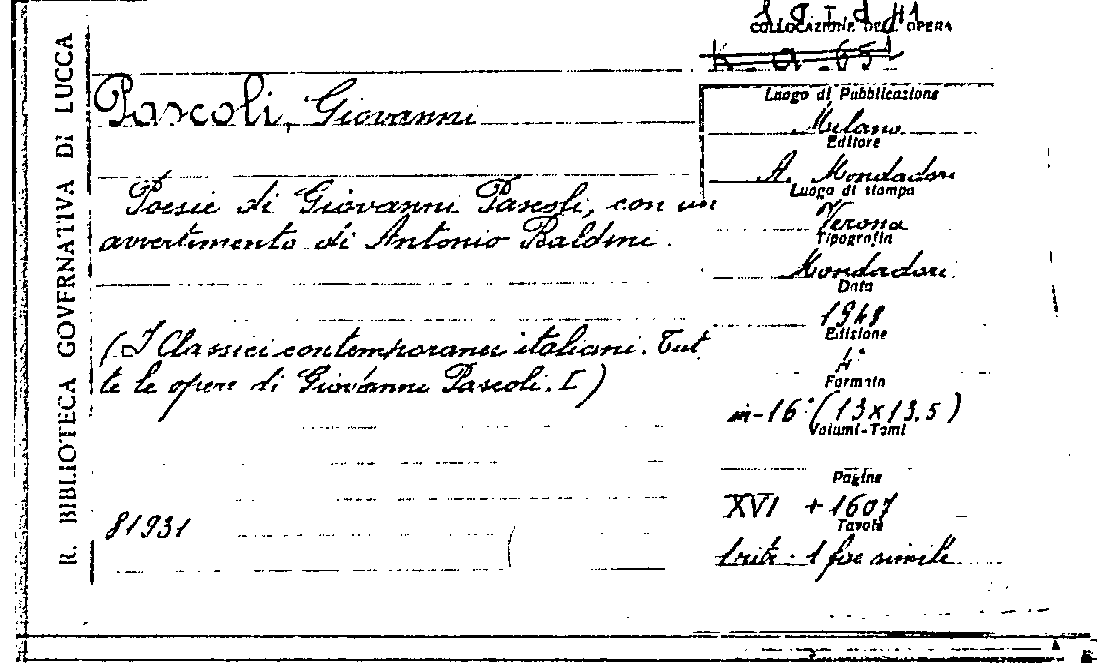 R. BIBLIOTECA GOVERNATIVA DI LUCCA
COLLOCAZIONE DELL'OPERA
Pascoli, Giovanni
Poesie di Giovanni Pascoli, con un
avvertimento di Antonio Baldini.
(I Classici contemporanei italiani. Tut
te le opere di Giovanni Pascoli. I)
81931
Luogo di Pubblicazione
Milano
Editore
A. Mondadori
Luogo di stampa
Verona
Tipografia
Mondadori
Data
1948
Edizione
4ª
Formato
in-16° (13x13,5)
Volumi-Tomi
Pagine
XVI + 1607
Tavole
1 fac simile